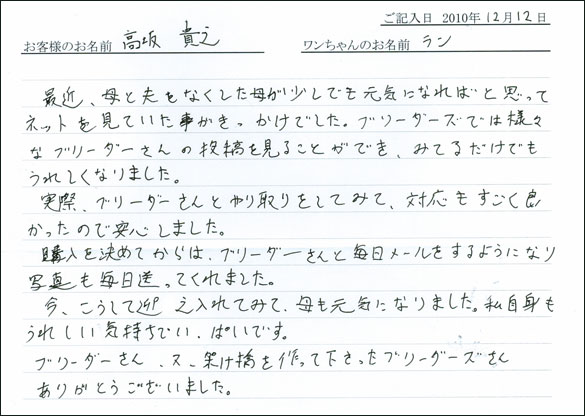 ご記入日 2010年12月12日
お客様のお名前 高坂 貴之 ワンちゃんのお名前 ラン
最近、母と夫をなくした母が少しでも元気になればと思って
ネットを見ていた事がきっかけでした。ブリーダーズでは様々
なブリーダーさんの投稿を見ることができ、みてるだけでも
うれしくなりました。
実際、ブリーダーさんとやり取りをしてみて、対応もすごく良
かったので安心しました。
購入を決めてからは、ブリーダーさんと毎日メールをするようになり
写真も毎日送ってくれました。
今、こうして迎え入れてみて、母も元気になりました。私自身も
うれしい気持ちでいっぱいです。
ブリーダーさん、架け橋を作って下さったブリーダーズさん
ありがとうございました。